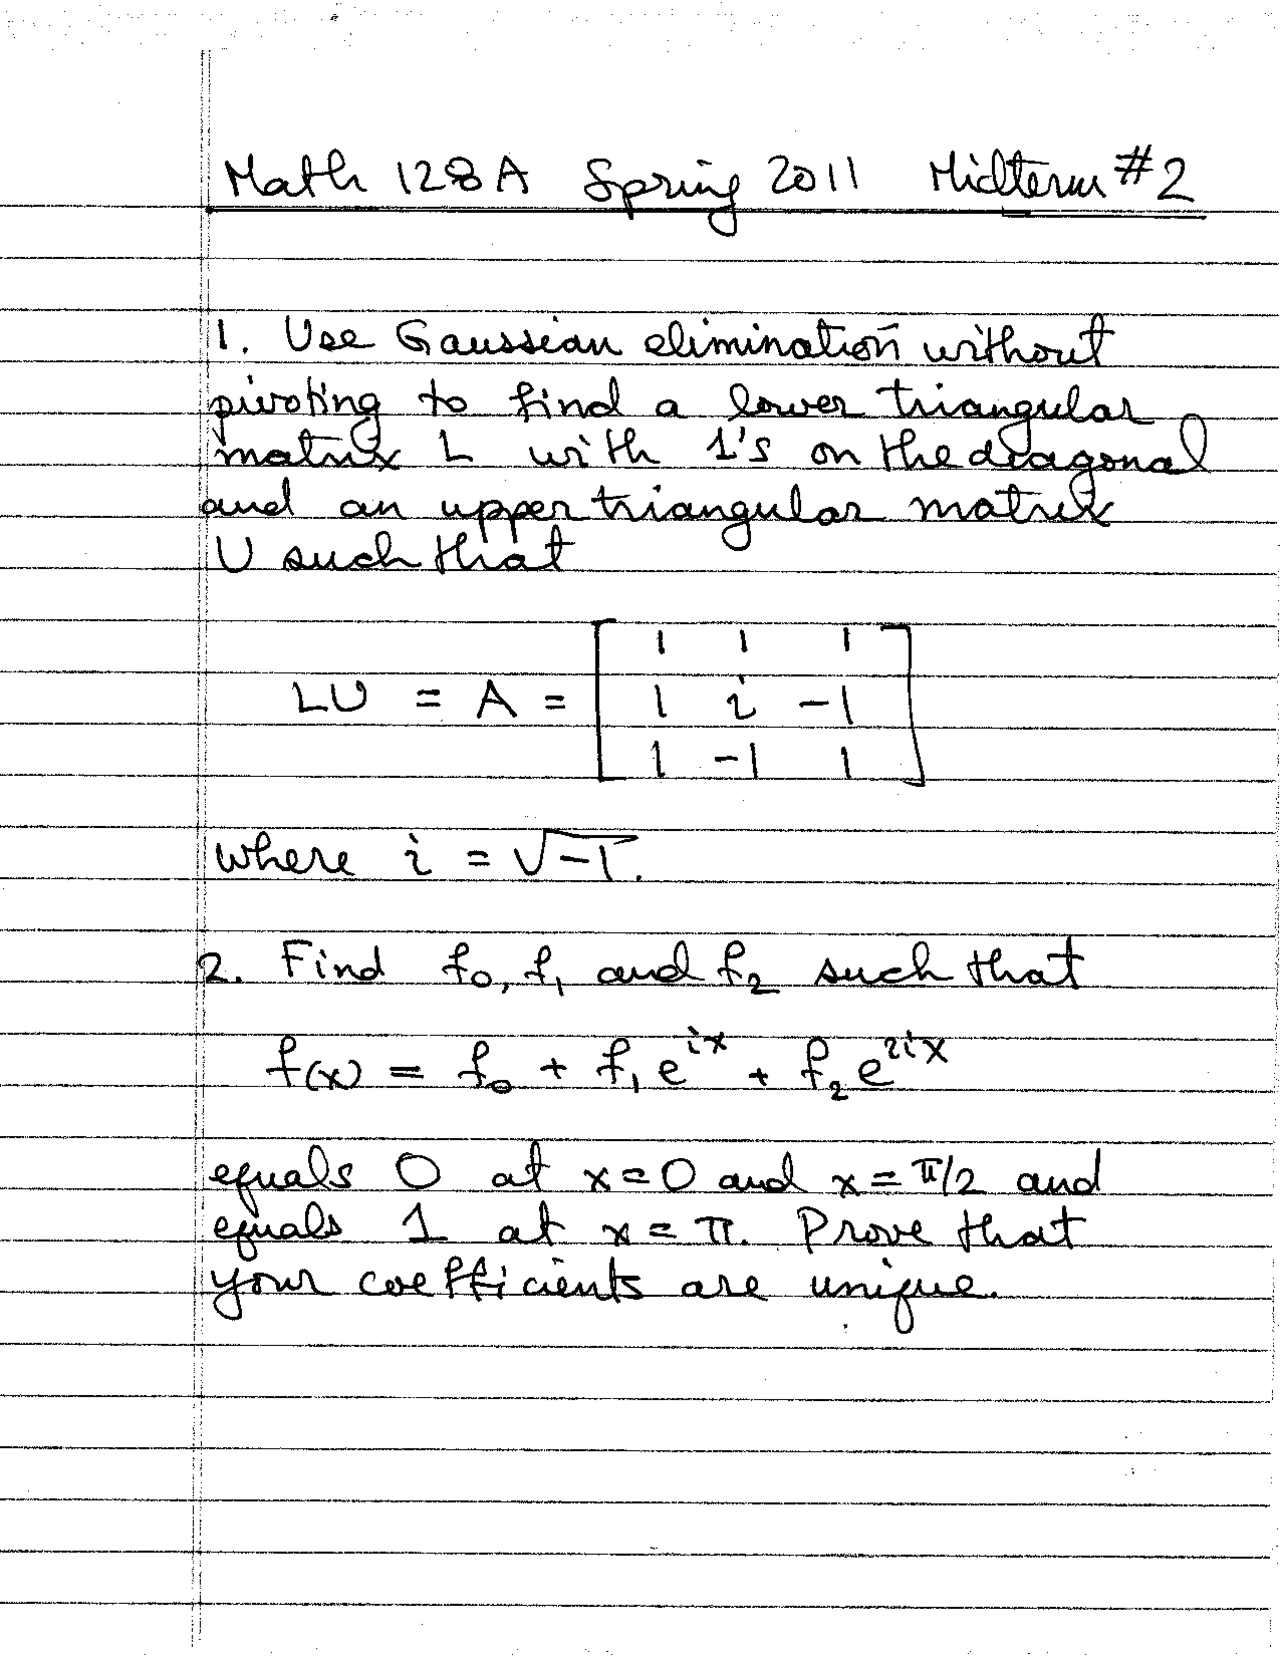 Math 128A Spring 2011 Midterm #2
1. Use Gaussian elimination without
pivoting to find a lower triangular
matrix L with 1's on the diagonal
and an upper triangular matrix
U such that
LU = A = [ 1 1 1
1 i -1
1 -1 1 ]
where i = √-1.
2. Find f₀, f₁ and f₂ such that
f(x) = f₀ + f₁e^{ix} + f₂e^{2ix}
equals 0 at x=0 and x=π/2 and
equals 1 at x=π. Prove that
your coefficients are unique.